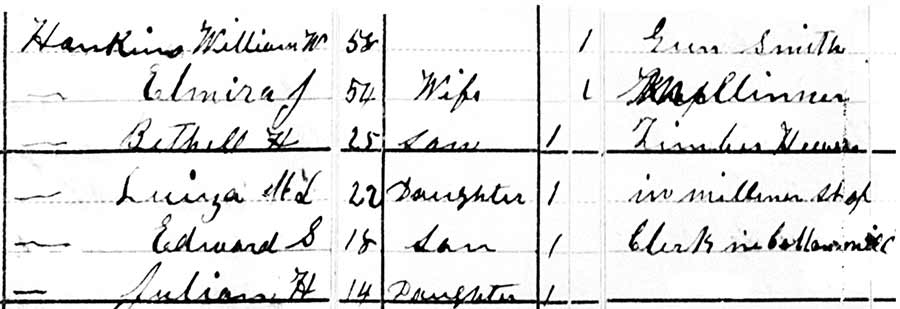 Hankins William W 58 1 Gun Smith
— Elmira J 54 Wife 1 Millinner
— Bethell H 25 Son 1 Timber Hewer
— Luiza M L 22 Daughter 1 in milliner shop
— Edward S 18 Son 1 Clerk in
— Julian H 14 Daughter 1